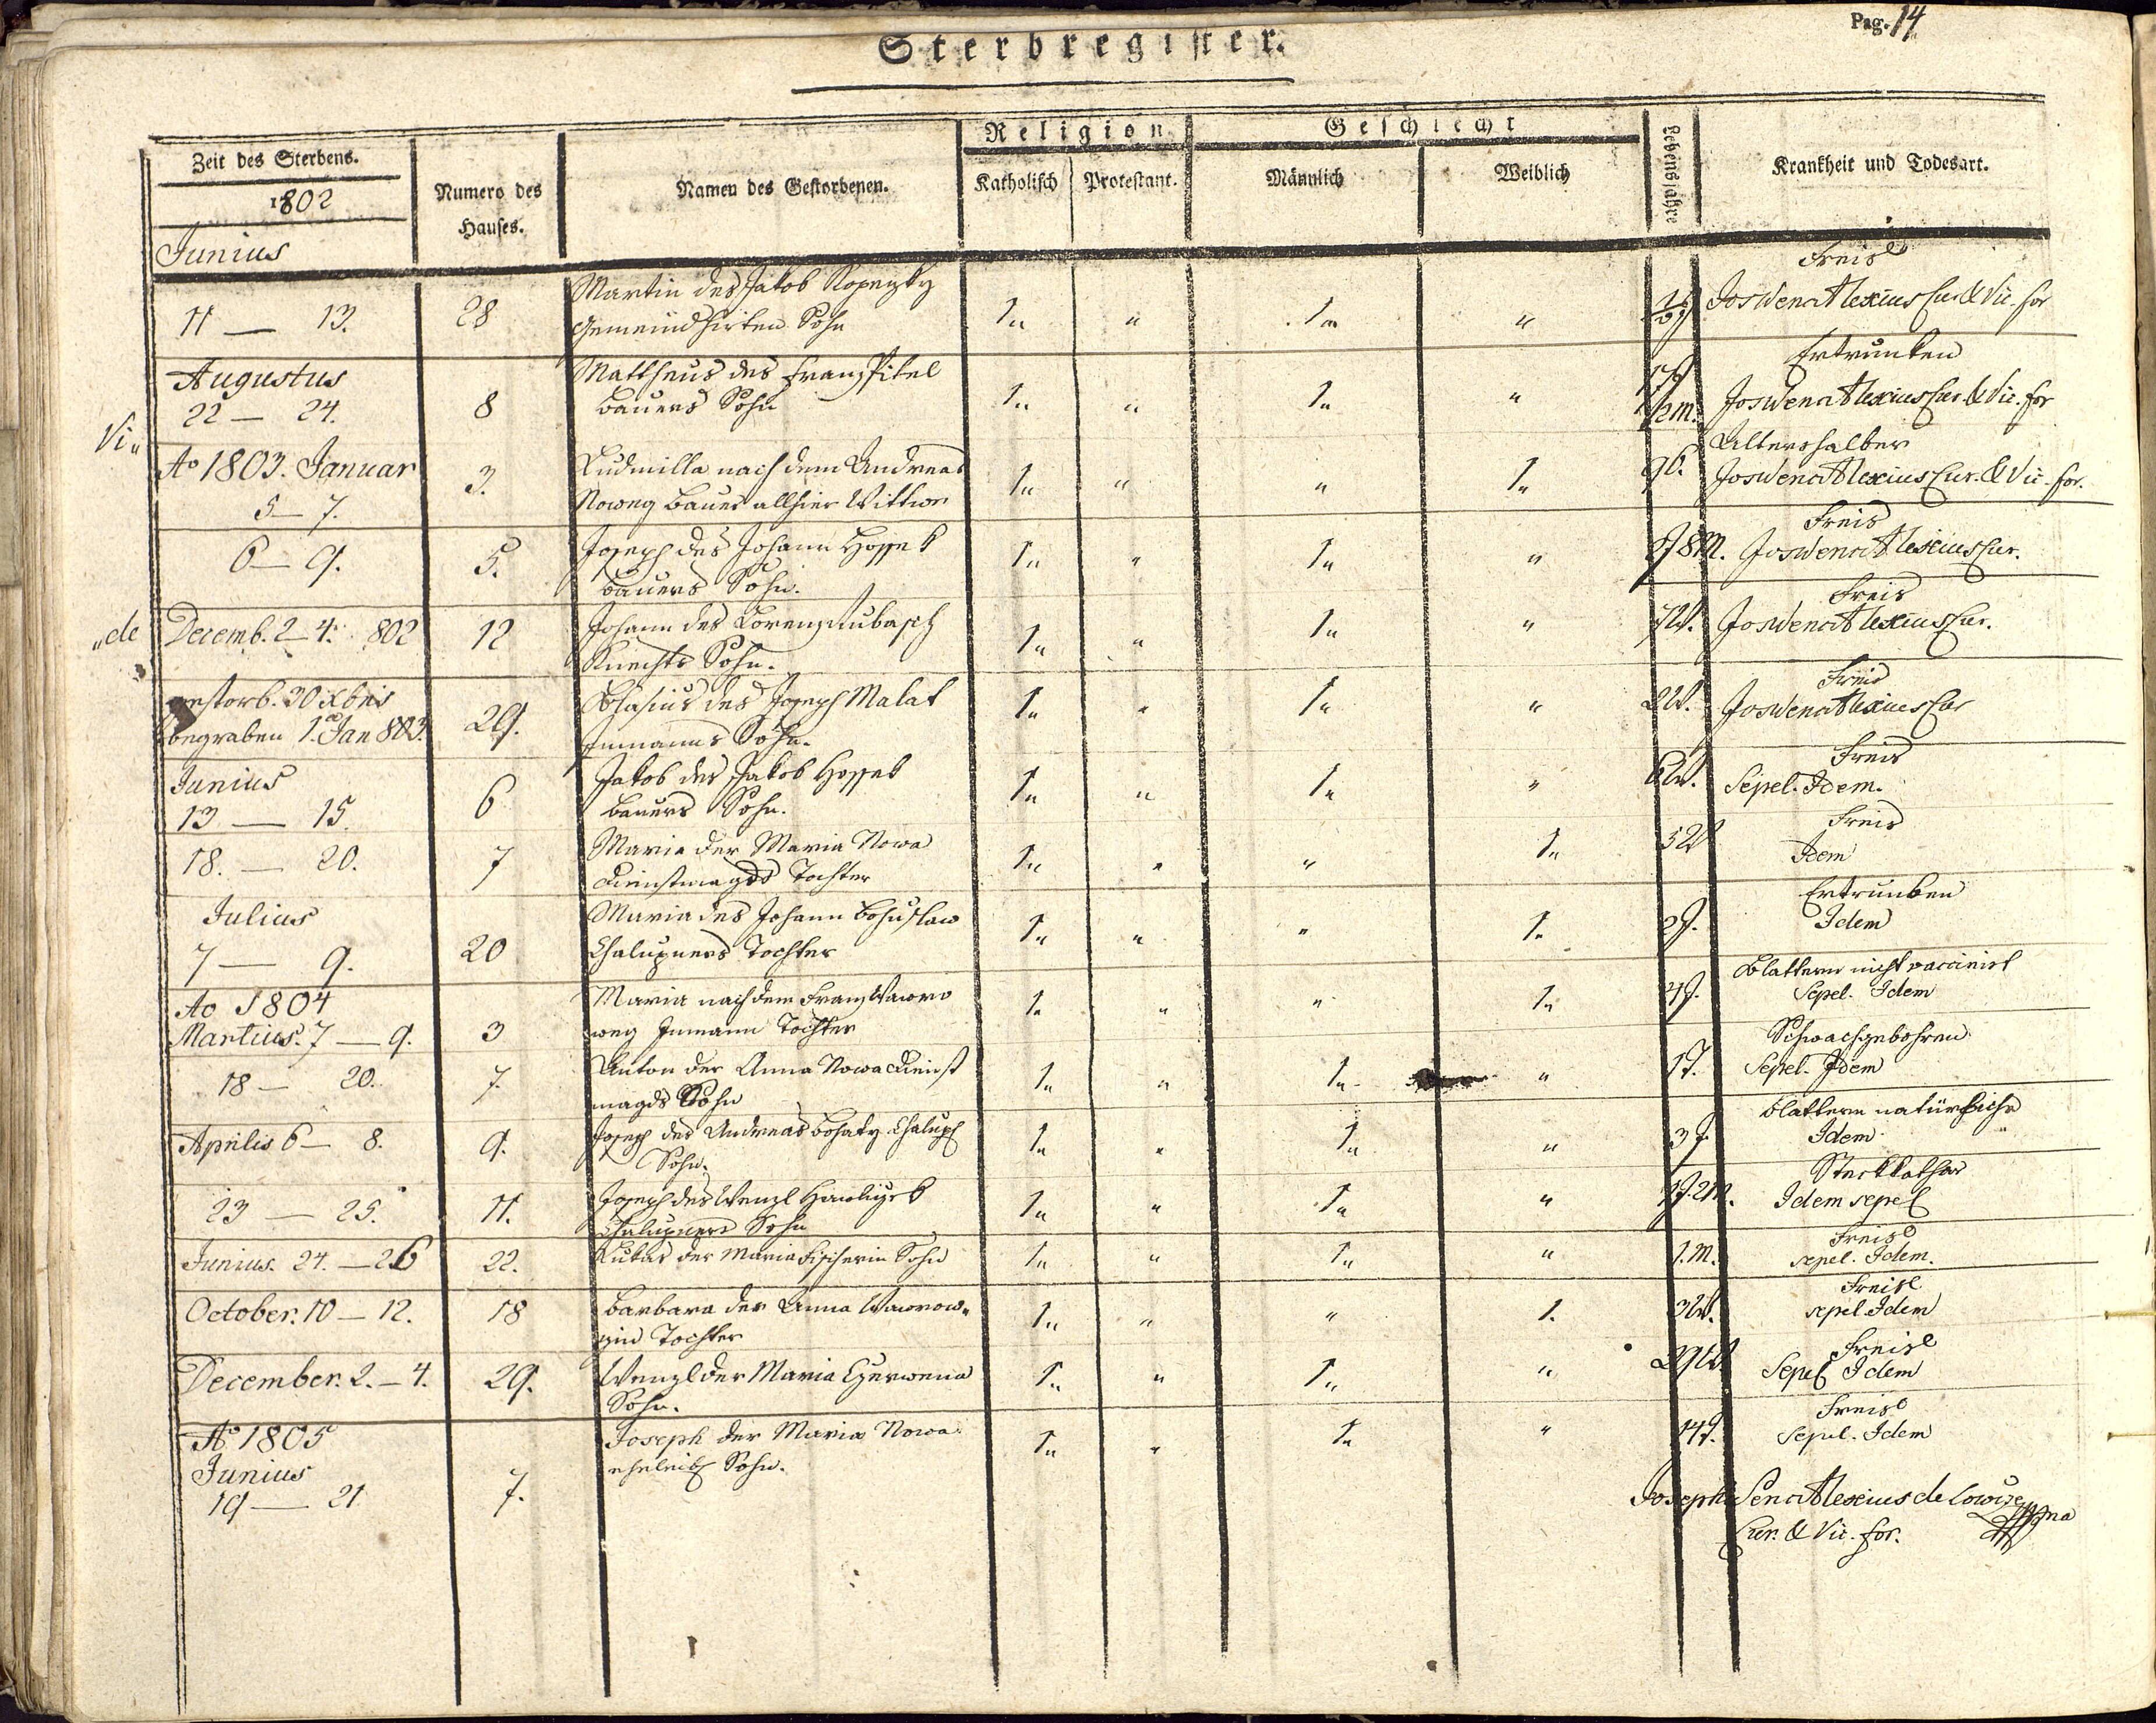 Pag. 14
Sterbregister.
Zeit des Sterbens.
1802
Junius
Numero des
Hauses.
Namen des Gestorbenen.
Religion
Katholisch
Protestant.
Geschlecht
Männlich
Weiblich
Lebensjahre
Krankheit und Todesart.
11 — 13.
28
Martin des Jakob Kopezky
Gemeindhirten Sohn
1„ „ 1„ „
Freis
Jos Wenc Alexius Cur. & Vic. for
Augustus
22 — 24.
8
Mattheus des Franz Pitel
Bauers Sohn
1„ „ 1„ „
Ertrunken
Jos Wenc Alexius Cur. & Vic. for
Vi„
Ao 1803. Januar
5 — 7.
3.
Ludmilla nach dem Andreas
Noweg Bauer allhier Wittwe
1„ „ „ 1„
96.
Altershalber
Jos Wenc Alexius Cur. & Vic. for.
6 — 9.
5.
Joseph des Johann Hossek
Bauers Sohn.
1„ „ 1„ „
2J 8M.
Freis
Jos Wenc Alexius Cur.
„de
Decemb. 2 — 4. 802
12
Johann des Lorenz Lubasch
Knechts Sohn.
1„ „ 1„ „
Freis
Jos Wenc Alexius Cur.
gestorb. 30 Xbris
begraben 1. Jan 803.
29.
Blasius des Joseph Malat
Inmanns Sohn.
1„ „ 1„ „
2W.
Freis
Jos Wenc Alexius Cur
Junius
13 — 15.
6
Jakob des Jakob Hossek
Bauers Sohn.
1„ „ 1„ „
6W.
Freis
Sepel. Idem.
18. — 20.
7
Maria der Maria Nowa
Dienstmagds Tochter
1„ „ „ 1„
5W
Freis
Idem
Julius
7 — 9.
20
Maria des Johann Bohuslaw
Chalupners Tochter
1„ „ „ 1„
2J.
Ertrunken
Idem
Ao 1804
Martius. 7 — 9.
3
Maria nach dem Franz Wawro
weg Inmann Tochter
1„ „ „ 1„
4J.
Blattern nicht vaccinirt
Sepel. Idem
18 — 20.
7.
Anton der Anna Nowa Dienst
magds Sohn
1„ „ 1„ „
1T.
Schwachgebohren
Sepel. Idem
Aprilis 6 — 8.
9.
Joseph des Andreas Bohaty Chalup
Sohn.
1„ „ 1„ „
3J.
Blattern natürliche
Idem
23 — 25.
11.
Joseph des Wenzl Hawliczek
Chalupners Sohn
1„ „ 1„ „
1J. 2M.
Steckkathar
Idem sepel
Junius. 24. — 26
22.
Lukas der Maria Fischerin Sohn
1„ „ 1„ „
1. M.
Freis
sepel. Idem.
October. 10 — 12.
18
Barbara der Anna Wawrow„
zin Tochter
1„ „ „ 1.
3W.
Freis
sepel. Idem
December. 2. — 4.
29.
Wenzl der Maria Czerwena
Sohn.
1„ „ 1„ „
Freis
Sepel Idem
Ao 1805
Junius
19 — 21
7.
Joseph der Maria Nowa
eheleib Sohn.
1„ „ 1„ „
14T.
Freis
Sepel. Idem
Joseph Wenc Alexius de
Cur. & Vic. for.